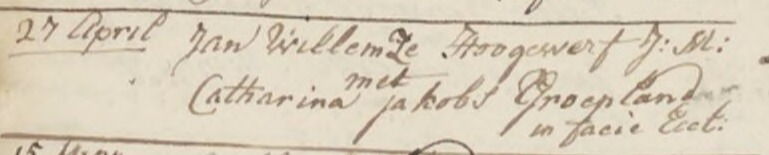 27 April Jan WillemZe Hoogewerf J: M:
met
Catharina Jakobs Groenland
in facie Eccl:
15